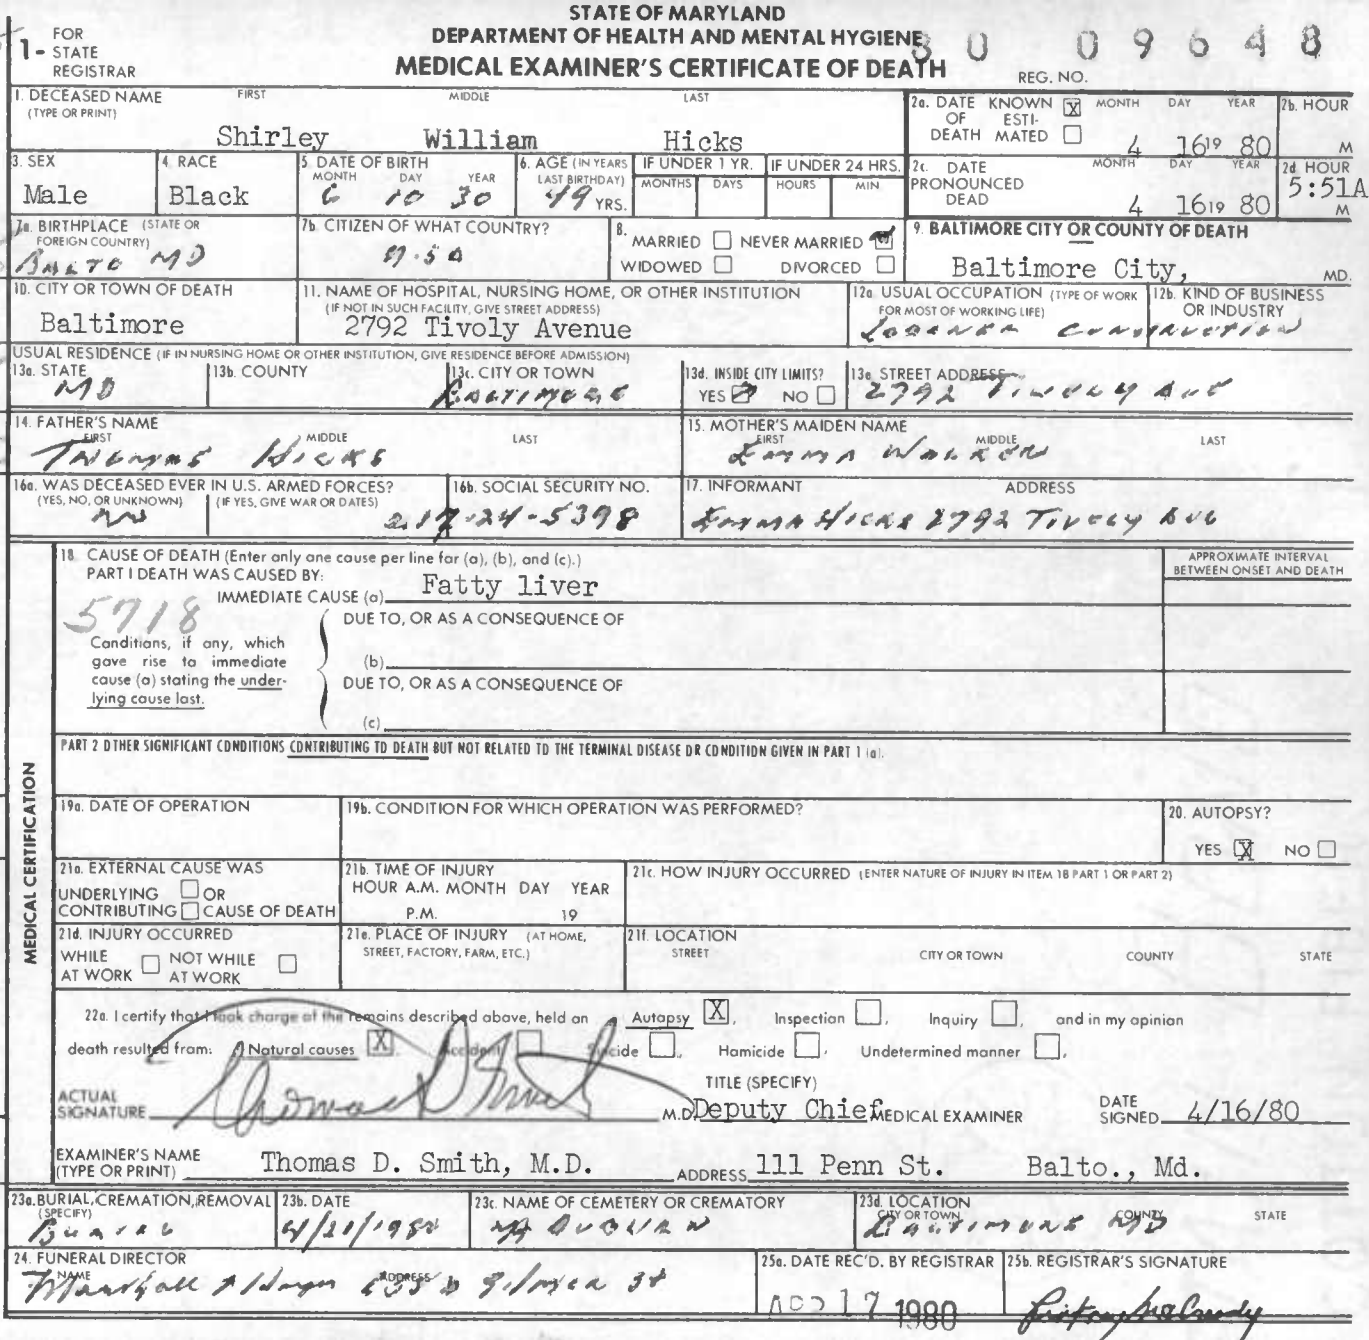 STATE OF MARYLAND
DEPARTMENT OF HEALTH AND MENTAL HYGIENE
MEDICAL EXAMINER'S CERTIFICATE OF DEATH
1- FOR STATE REGISTRAR
80 09648
REG. NO.
1. DECEASED NAME (TYPE OR PRINT) FIRST MIDDLE LAST
Shirley William Hicks
2a. DATE OF DEATH KNOWN X ESTIMATED MONTH DAY YEAR
4 16 19 80
2b. HOUR M
3. SEX
Male
4. RACE
Black
5. DATE OF BIRTH MONTH DAY YEAR
6 10 30
6. AGE (IN YEARS LAST BIRTHDAY)
49 YRS.
IF UNDER 1 YR. MONTHS DAYS
IF UNDER 24 HRS. HOURS MIN
2c. DATE PRONOUNCED DEAD MONTH DAY YEAR
4 16 19 80
2d HOUR
5:51A M
7a. BIRTHPLACE (STATE OR FOREIGN COUNTRY)
BALTO MD
7b. CITIZEN OF WHAT COUNTRY?
8. MARRIED NEVER MARRIED
WIDOWED DIVORCED
9. BALTIMORE CITY OR COUNTY OF DEATH
Baltimore City, MD.
10. CITY OR TOWN OF DEATH
Baltimore
11. NAME OF HOSPITAL, NURSING HOME, OR OTHER INSTITUTION
(IF NOT IN SUCH FACILITY, GIVE STREET ADDRESS)
2792 Tivoly Avenue
12a USUAL OCCUPATION (TYPE OF WORK FOR MOST OF WORKING LIFE)
LABORER
12b. KIND OF BUSINESS OR INDUSTRY
CONSTRUCTION
USUAL RESIDENCE (IF IN NURSING HOME OR OTHER INSTITUTION, GIVE RESIDENCE BEFORE ADMISSION)
13a. STATE
MD
13b. COUNTY
13c. CITY OR TOWN
BALTIMORE
13d. INSIDE CITY LIMITS?
YES NO
13e STREET ADDRESS
2792 TIVOLY AVE
14. FATHER'S NAME FIRST MIDDLE LAST
THOMAS HICKS
15. MOTHER'S MAIDEN NAME FIRST MIDDLE LAST
EMMA WALKER
16a. WAS DECEASED EVER IN U.S. ARMED FORCES?
(YES, NO, OR UNKNOWN) (IF YES, GIVE WAR OR DATES)
NO
16b. SOCIAL SECURITY NO.
217-24-5398
17. INFORMANT ADDRESS
EMMA HICKS 2792 TIVOLY AVE
18. CAUSE OF DEATH (Enter only one cause per line for (a), (b), and (c).)
PART I DEATH WAS CAUSED BY:
IMMEDIATE CAUSE (a) Fatty liver
APPROXIMATE INTERVAL BETWEEN ONSET AND DEATH
5718
Conditions, if any, which gave rise to immediate cause (a) stating the underlying cause last.
DUE TO, OR AS A CONSEQUENCE OF
(b)
DUE TO, OR AS A CONSEQUENCE OF
(c)
PART 2 OTHER SIGNIFICANT CONDITIONS CONTRIBUTING TO DEATH BUT NOT RELATED TO THE TERMINAL DISEASE OR CONDITION GIVEN IN PART 1 (a).
MEDICAL CERTIFICATION
19a. DATE OF OPERATION
19b. CONDITION FOR WHICH OPERATION WAS PERFORMED?
20. AUTOPSY?
YES X NO
21a. EXTERNAL CAUSE WAS
UNDERLYING OR
CONTRIBUTING CAUSE OF DEATH
21b. TIME OF INJURY
HOUR A.M. MONTH DAY YEAR
P.M. 19
21c. HOW INJURY OCCURRED (ENTER NATURE OF INJURY IN ITEM 18 PART 1 OR PART 2)
21d. INJURY OCCURRED
WHILE AT WORK NOT WHILE AT WORK
21e. PLACE OF INJURY (AT HOME, STREET, FACTORY, FARM, ETC.)
21f. LOCATION
STREET CITY OR TOWN COUNTY STATE
22a. I certify that I took charge of the remains described above, held an Autopsy X, Inspection, Inquiry, and in my opinion
death resulted from: Natural causes X, Accident, Suicide, Homicide, Undetermined manner.
ACTUAL SIGNATURE Thomas D Smith M.D.
TITLE (SPECIFY)
Deputy Chief MEDICAL EXAMINER
DATE SIGNED 4/16/80
EXAMINER'S NAME (TYPE OR PRINT) Thomas D. Smith, M.D. ADDRESS 111 Penn St. Balto., Md.
23a. BURIAL, CREMATION, REMOVAL (SPECIFY)
BURIAL
23b. DATE
4/21/1980
23c. NAME OF CEMETERY OR CREMATORY
MT AUBURN
23d. LOCATION CITY OR TOWN COUNTY STATE
BALTIMORE MD
24. FUNERAL DIRECTOR
NAME ADDRESS
Marshall
25a. DATE REC'D. BY REGISTRAR
APR 17 1980
25b. REGISTRAR'S SIGNATURE